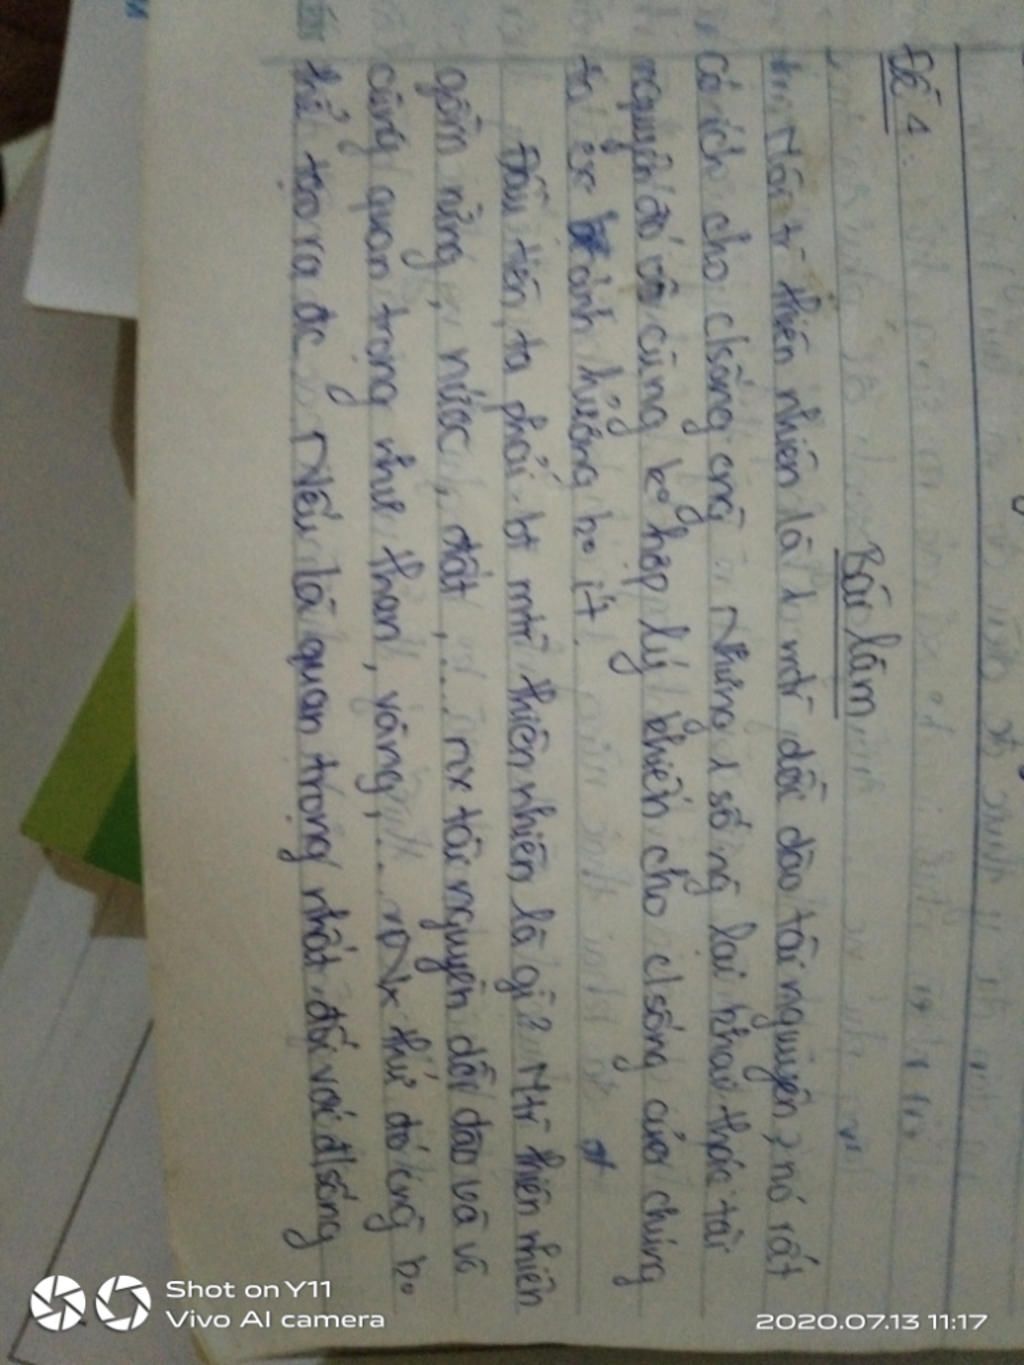 Đề 4:
Bài làm
Môi tr thiên nhiên là 1 mtr dồi dào tài nguyên, nó rất
có ích cho c/sống cng. Nhưng 1 số ng lại khai thác tài
nguyên đó vô cùng ko hợp lý khiến cho c/sống của chúng
ta ảnh hưởng ko ít.
Đầu tiên, ta phải bt mtr thiên nhiên là gì? Mtr thiên nhiên
gồm rừng, nước, đất, ... nx tài nguyên dồi dào và vô
cùng quan trọng như than, vàng, ... Nx thứ đó cng ko
thể tạo ra đc. Nếu là quan trọng nhất đối với đ/sống
Shot on Y11
Vivo AI camera
2020.07.13 11:17